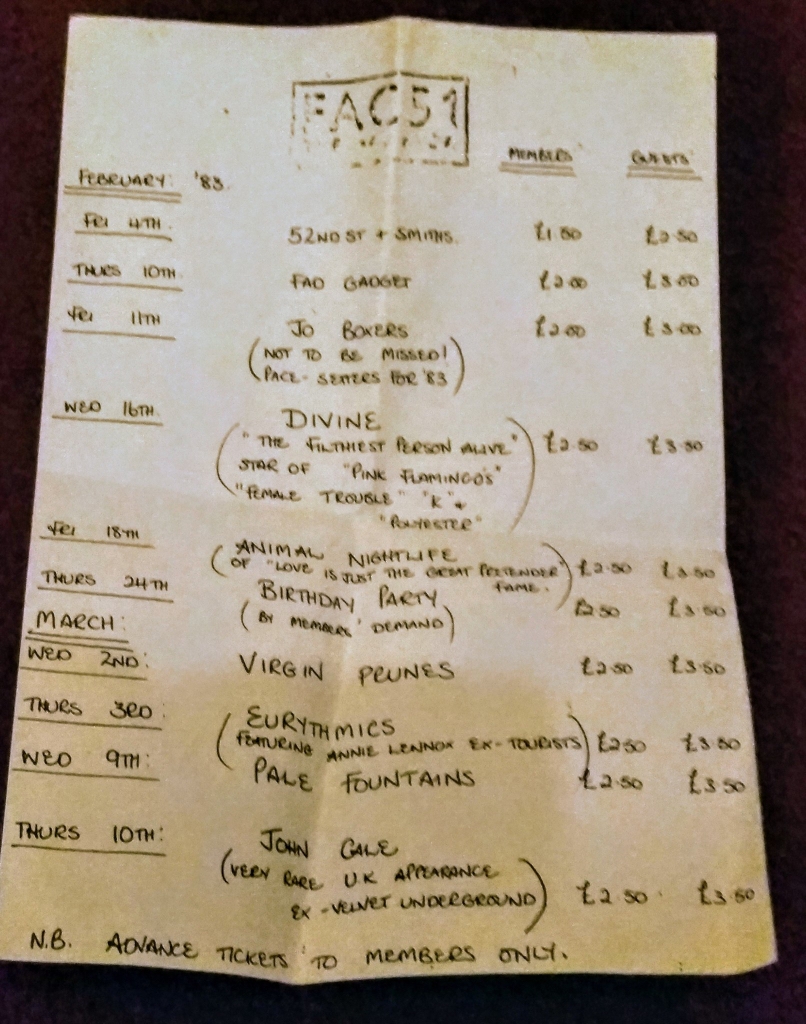 FAC51
MEMBERS GUESTS
FEBRUARY: '83.
FRI 4TH. 52ND ST + SMITHS. £1.50 £2.50
THURS 10TH FAD GADGET £2.00 £3.00
FRI 11TH JO BOXERS £2.00 £3.00
(NOT TO BE MISSED!
PACE-SETTERS FOR '83)
WED 16TH. DIVINE
("THE FILTHIEST PERSON ALIVE" £2.50 £3.50
STAR OF "PINK FLAMINGO'S"
"FEMALE TROUBLE" "K" +
"POLYESTER")
FRI 18TH (ANIMAL NIGHTLIFE £2.50 £3.50
OF "LOVE IS JUST THE GREAT PRETENDER"
FAME.)
THURS 24TH BIRTHDAY PARTY £2.50 £3.50
(BY MEMBERS' DEMAND)
MARCH:
WED 2ND: VIRGIN PRUNES £2.50 £3.50
THURS 3RD: EURYTHMICS
(FEATURING ANNIE LENNOX EX-TOURISTS) £2.50 £3.50
WED 9TH: PALE FOUNTAINS £2.50 £3.50
THURS 10TH: JOHN CALE
(VERY RARE U.K APPEARANCE
EX-VELVET UNDERGROUND) £2.50 £3.50
N.B. ADVANCE TICKETS TO MEMBERS ONLY.